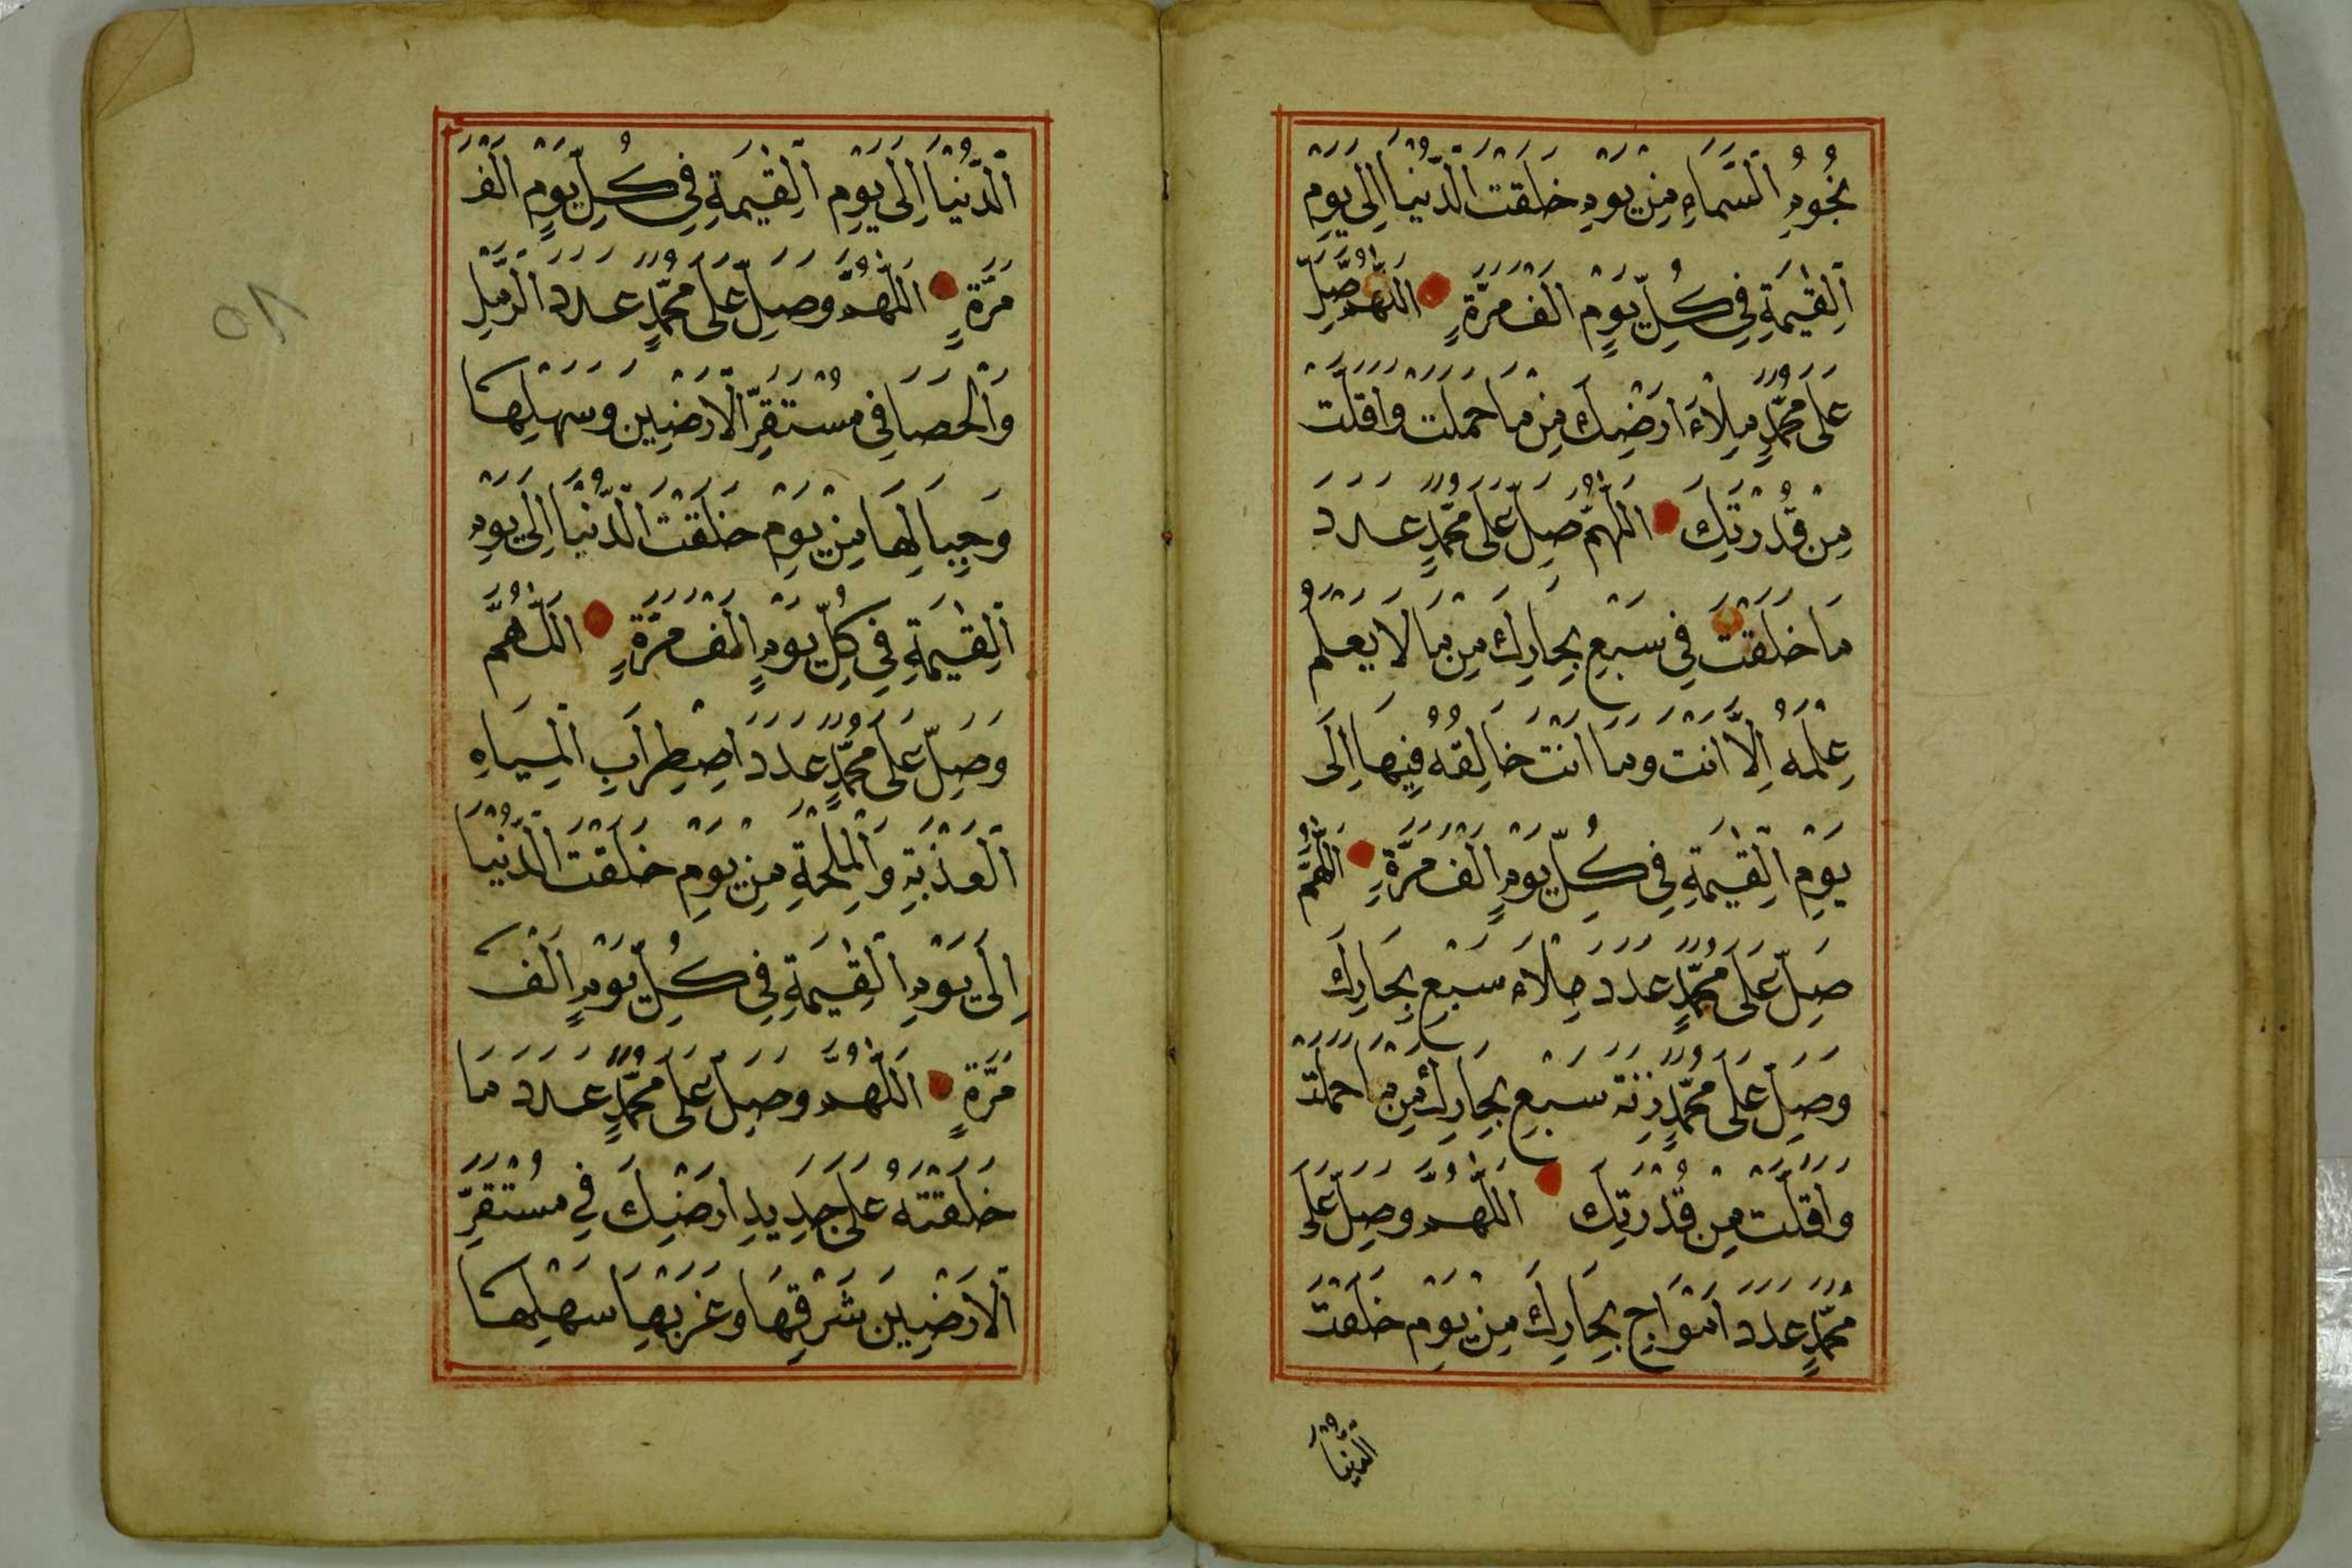 نُجُومِ اَلسَّمَاءِ مِنْ يَوْمِ خَلَقْتَ الدُّنْيَا اِلَى يَوْمِ
اَلْقِيٰمَةِ فِي كُلِّ يَوْمٍ اَلْفَ مَرَّةٍ اَللّٰهُمَّ صَلِّ
عَلَى مُحَمَّدٍ مِلَاءَ اَرْضِكَ مِنْ مَا حَمَلَتْ وَاَقَلَّتْ
مِنْ قُدْرَتِكَ اَللّٰهُمَّ صَلِّ عَلَى مُحَمَّدٍ عَدَدَ
مَا خَلَقْتَ فِي سَبْعِ بِحَارِكَ مِنْ مَا لَا يَعْلَمُ
عِلْمَهُ اِلَّا اَنْتَ وَمَا اَنْتَ خَالِقُهُ فِيْهَا اِلَى
يَوْمِ اَلْقِيٰمَةِ فِي كُلِّ يَوْمٍ اَلْفَ مَرَّةٍ اَللّٰهُمَّ
صَلِّ عَلَى مُحَمَّدٍ عَدَدَ مِلَاءَ سَبْعِ بِحَارِكَ
وَصَلِّ عَلَى مُحَمَّدٍ زِنَةَ سَبْعِ بِحَارِكَ مِنْ مَا حَمَلَتْ
وَاَقَلَّتْ مِنْ قُدْرَتِكَ اَللّٰهُمَّ وَصَلِّ عَلَى
مُحَمَّدٍ عَدَدَ اَمْوَاجِ بِحَارِكَ مِنْ يَوْمِ خَلَقْتَ
الدُّنْيَا
اَلدُّنْيَا اِلَى يَوْمِ اَلْقِيٰمَةِ فِي كُلِّ يَوْمٍ اَلْفَ
مَرَّةٍ اَللّٰهُمَّ وَصَلِّ عَلَى مُحَمَّدٍ عَدَدَ الرَّمْلِ
وَاَلْحَصَا فِي مُسْتَقَرِّ اَلْاَرَضِيْنَ وَسَهْلِهَا
وَجِبَالِهَا مِنْ يَوْمِ خَلَقْتَ الدُّنْيَا اِلَى يَوْمِ
اَلْقِيٰمَةِ فِي كُلِّ يَوْمٍ اَلْفَ مَرَّةٍ اَللّٰهُمَّ
وَصَلِّ عَلَى مُحَمَّدٍ عَدَدَ اضْطِرَابِ اَلْمِيَاهِ
اَلْعَذْبَةِ وَاَلْمِلْحَةِ مِنْ يَوْمِ خَلَقْتَ الدُّنْيَا
اِلَى يَوْمِ اَلْقِيٰمَةِ فِي كُلِّ يَوْمٍ اَلْفَ
مَرَّةٍ اَللّٰهُمَّ وَصَلِّ عَلَى مُحَمَّدٍ عَدَدَ مَا
خَلَقْتَهُ عَلَى جَدِيدِ اَرْضِكَ فِي مُسْتَقَرِّ
اَلْاَرَضِيْنَ شَرْقِهَا وَغَرْبِهَا سَهْلِهَا
٥٨